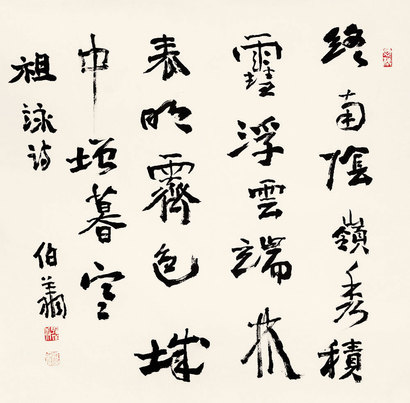 終南陰嶺秀積
䨮浮雲端林
表明霽色城
中增暮寒
祖詠詩
伯